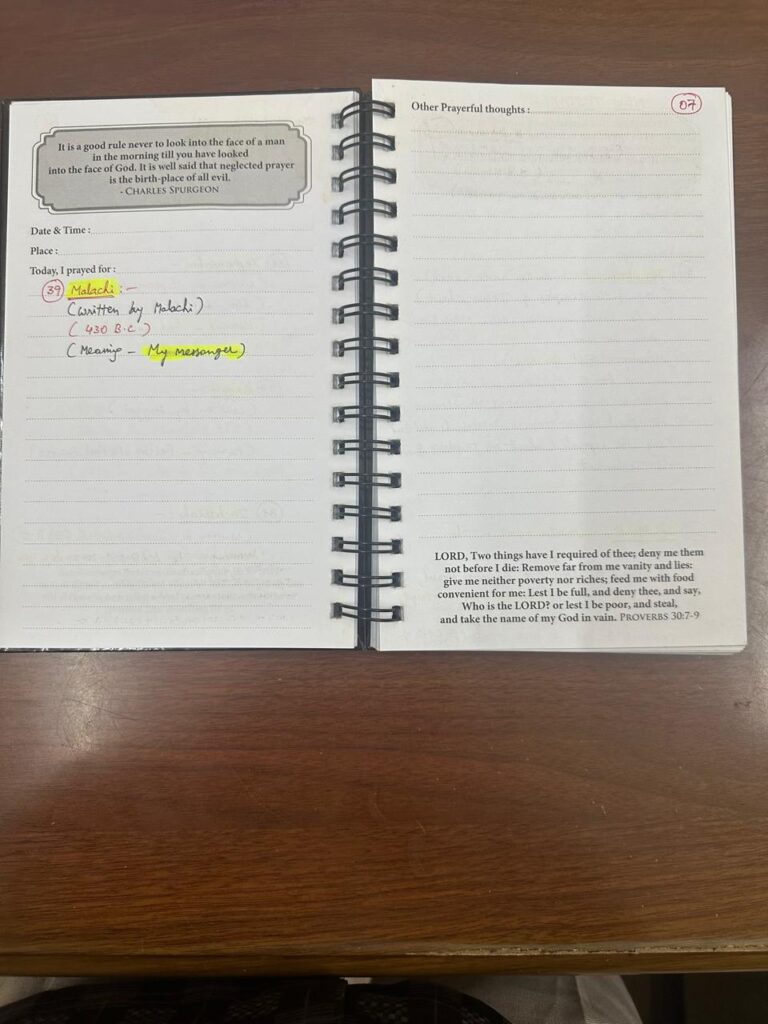 It is a good rule never to look into the face of a man
in the morning till you have looked
into the face of God. It is well said that neglected prayer
is the birth-place of all evil.
- CHARLES SPURGEON
Date & Time :
Place :
Today, I prayed for :
39 Malachi :-
(written by Malachi)
( 430 B.C )
(Meaning - My messanger)
Other Prayerful thoughts :
07
LORD, Two things have I required of thee; deny me them
not before I die: Remove far from me vanity and lies:
give me neither poverty nor riches; feed me with food
convenient for me: Lest I be full, and deny thee, and say,
Who is the LORD? or lest I be poor, and steal,
and take the name of my God in vain. PROVERBS 30:7-9